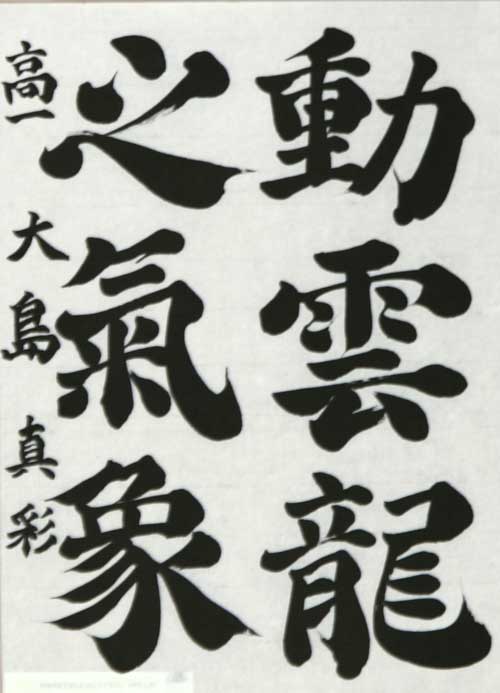 動雲龍
之氣象
高一 大島真彩